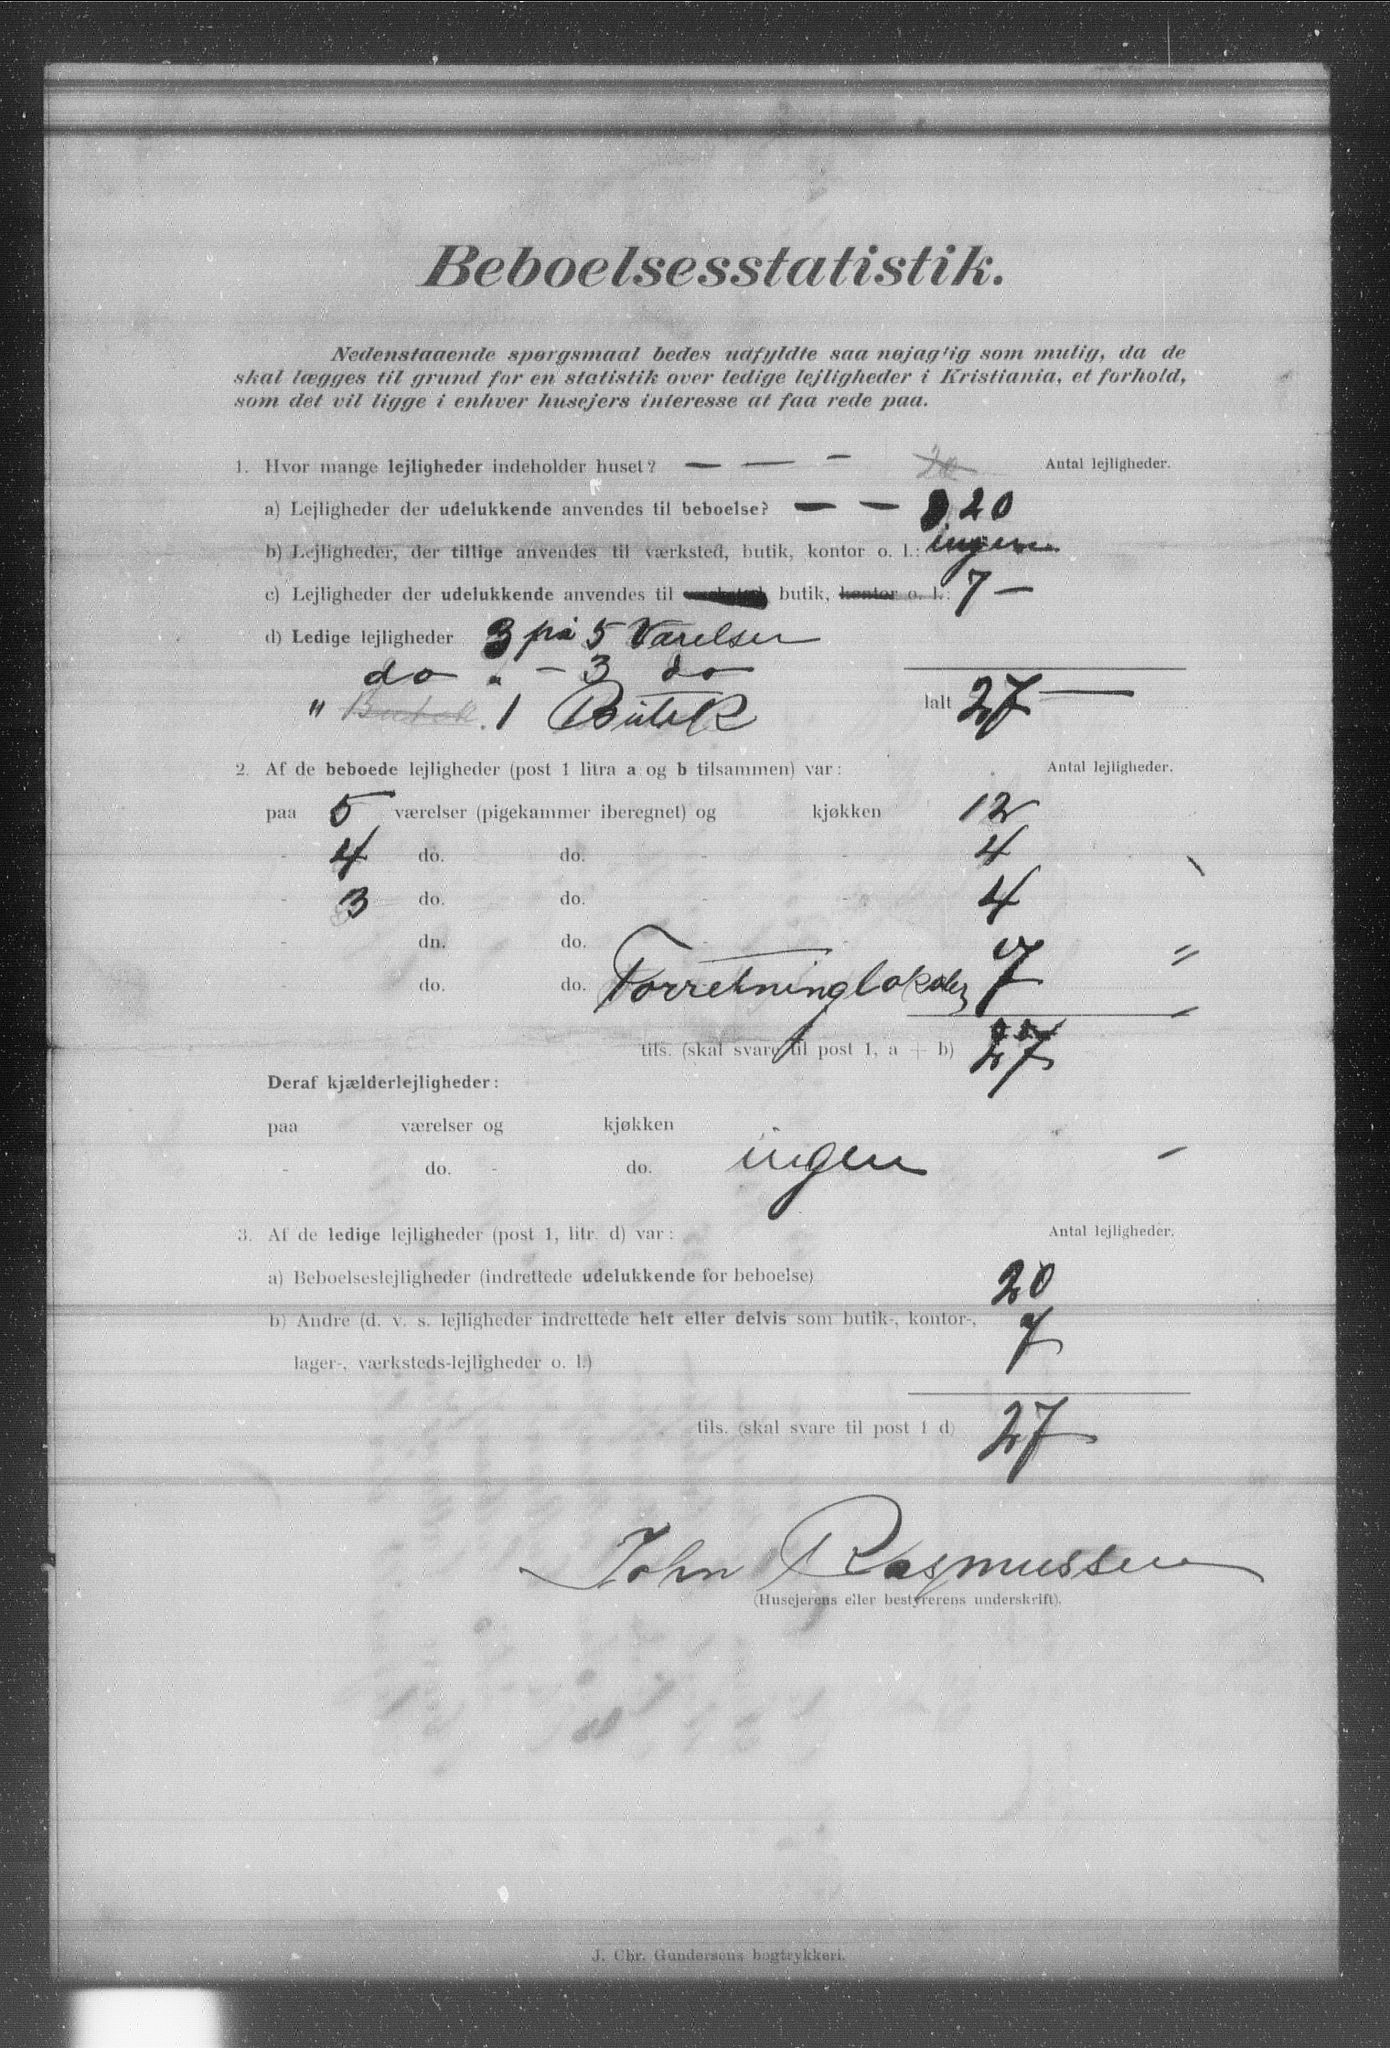 Beboelsesstatistik.
Nedenstaaende spørgsmaal bedes udfyldte saa nøjagtig som mulig, da de
skal lægges til grund for en statistik over ledige lejligheder i Kristiania, et forhold,
som det vil ligge i enhver husejers interesse at faa rede paa.
1. Hvor mange lejligheder indeholder huset? — — - 20 Antal lejligheder.
a) Lejligheder der udelukkende anvendes til beboelse? — — 20
b) Lejligheder, der tillige anvendes til værksted, butik, kontor o. l.: ingen
c) Lejligheder der udelukkende anvendes til butik, kontor o. l.: 7 —
d) Ledige lejligheder 3 på 5 Værelser
do " - 3 do
" Butik . 1 Butik Ialt 27 —
2. Af de beboede lejligheder (post 1 litra a og b tilsammen) var: Antal lejligheder.
paa 5 værelser (pigekammer iberegnet) og kjøkken 12
- 4 do. do. - - 4
- 3 do. do. - - 4
- dn. do. - - "
- do. do. Forretninglokaler 7
tils. (skal svare til post 1, a + b) 27
Deraf kjælderlejligheder:
paa værelser og kjøkken
- do. - do. ingen
3. Af de ledige lejligheder (post 1, litr. d) var: Antal lejligheder.
a) Beboelseslejligheder (indrettede udelukkende for beboelse) 20
b) Andre (d. v. s. lejligheder indrettede helt eller delvis som butik-, kontor-, 7
lager-, værksteds-lejligheder o. l.)
tils. (skal svare til post 1 d) 27
John Rasmussen
(Husejerens eller bestyrerens underskrift).
J. Chr. Gundersens bogtrykkeri.